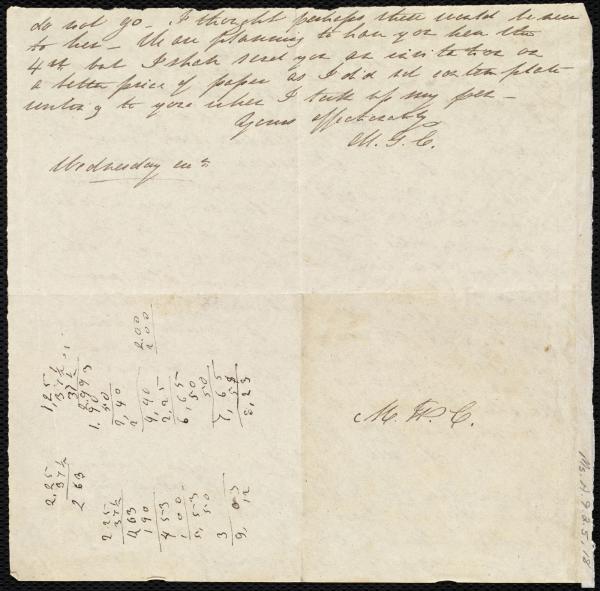 do not go - I thought perhaps there would be room
to her - We are planning to have you hear the
4th but I shall send you an invitation on
a better piece of paper as I did not contemplate
writing to you when I took up my pen -
Yours affectionately
M. G. C.
Wednesday
M. W. C.
2.00
2.00
1,25
37½
37½
1.90
50
2,40
9,90
2,25
6,65
50
7,65
58
8,23
2.25
37½
2 63
2 25
37½
2 63
1 90
4 53
1 00
5,53
50
3
9,
12
Ms. A. 9. 2. 5, 18